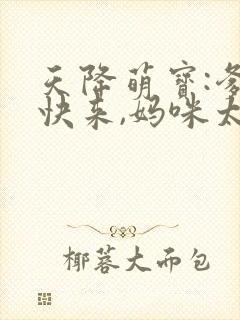 天降萌宝:爹
快来,妈咪太
椰蓉大而包